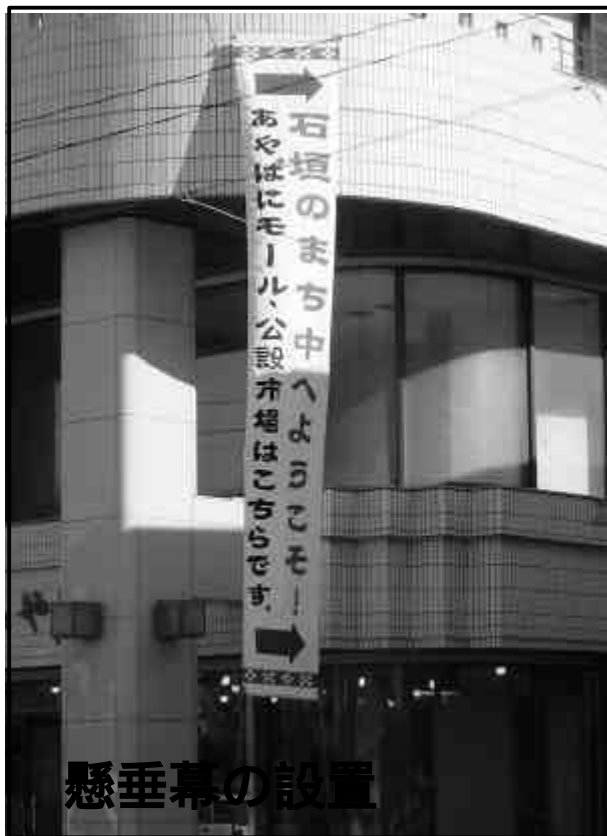 石垣のまち中へようこそ！
あやぱにモール、公設市場はこちらです。
や
懸垂幕の設置